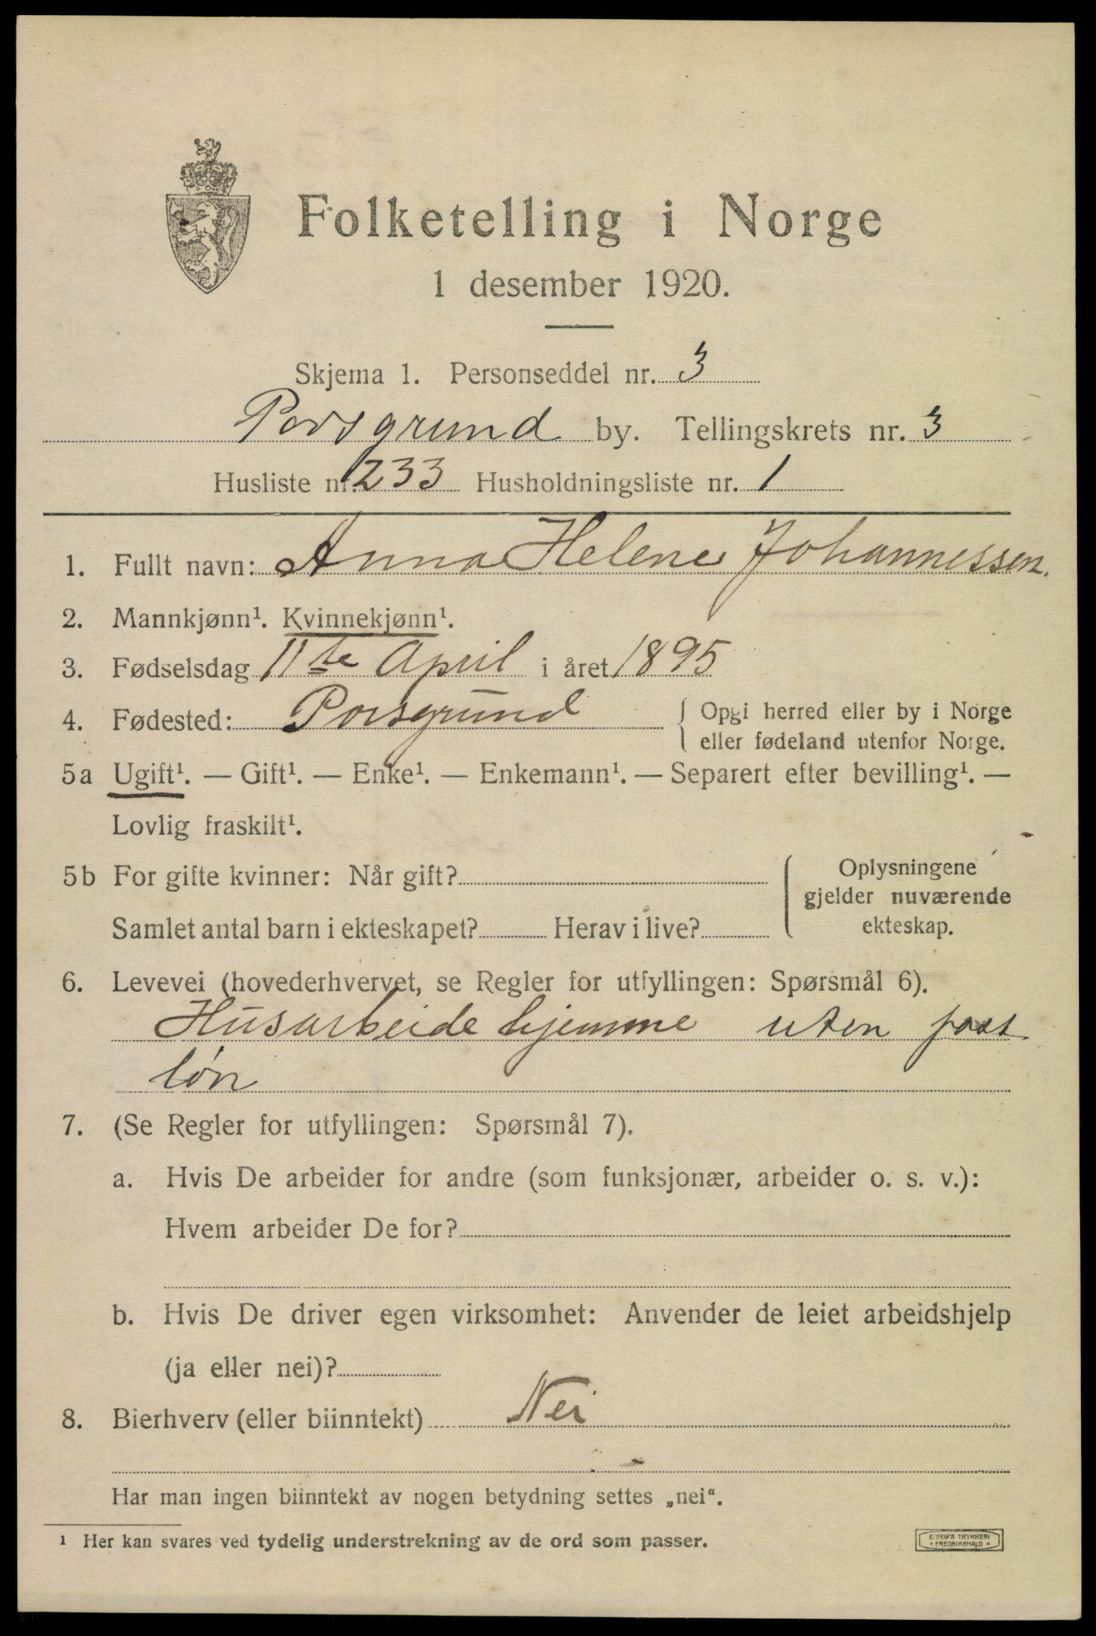 Folketelling i Norge
1 desember 1920.
Skjema 1. Personseddel nr. 3
Porsgrund by. Tellingskrets nr. 3
Husliste nr. 233 Husholdningsliste nr. 1
1. Fullt navn: Anna Helene Johannessen.
2. Mannkjønn¹. Kvinnekjønn¹.
3. Fødselsdag 11te April i året 1895
4. Fødested: Porsgrund { Opgi herred eller by i Norge
eller fødeland utenfor Norge.
5a Ugift¹. — Gift¹. — Enke¹. — Enkemann¹. — Separert efter bevilling¹. —
Lovlig fraskilt¹.
5b For gifte kvinner: Når gift? { Oplysningene
gjelder nuværende
Samlet antal barn i ekteskapet? Herav i live? ekteskap.
6. Levevei (hovederhvervet, se Regler for utfyllingen: Spørsmål 6).
Husarbeide hjemme uten fast
løn
7. (Se Regler for utfyllingen: Spørsmål 7).
a. Hvis De arbeider for andre (som funksjonær, arbeider o. s. v.):
Hvem arbeider De for?
b. Hvis De driver egen virksomhet: Anvender de leiet arbeidshjelp
(ja eller nei)?
8. Bierhverv (eller biinntekt) Nei
Har man ingen biinntekt av nogen betydning settes „nei“.
¹ Her kan svares ved tydelig understrekning av de ord som passer.
E. SEM'S TRYKKERI
• FREDRIKSHALD •